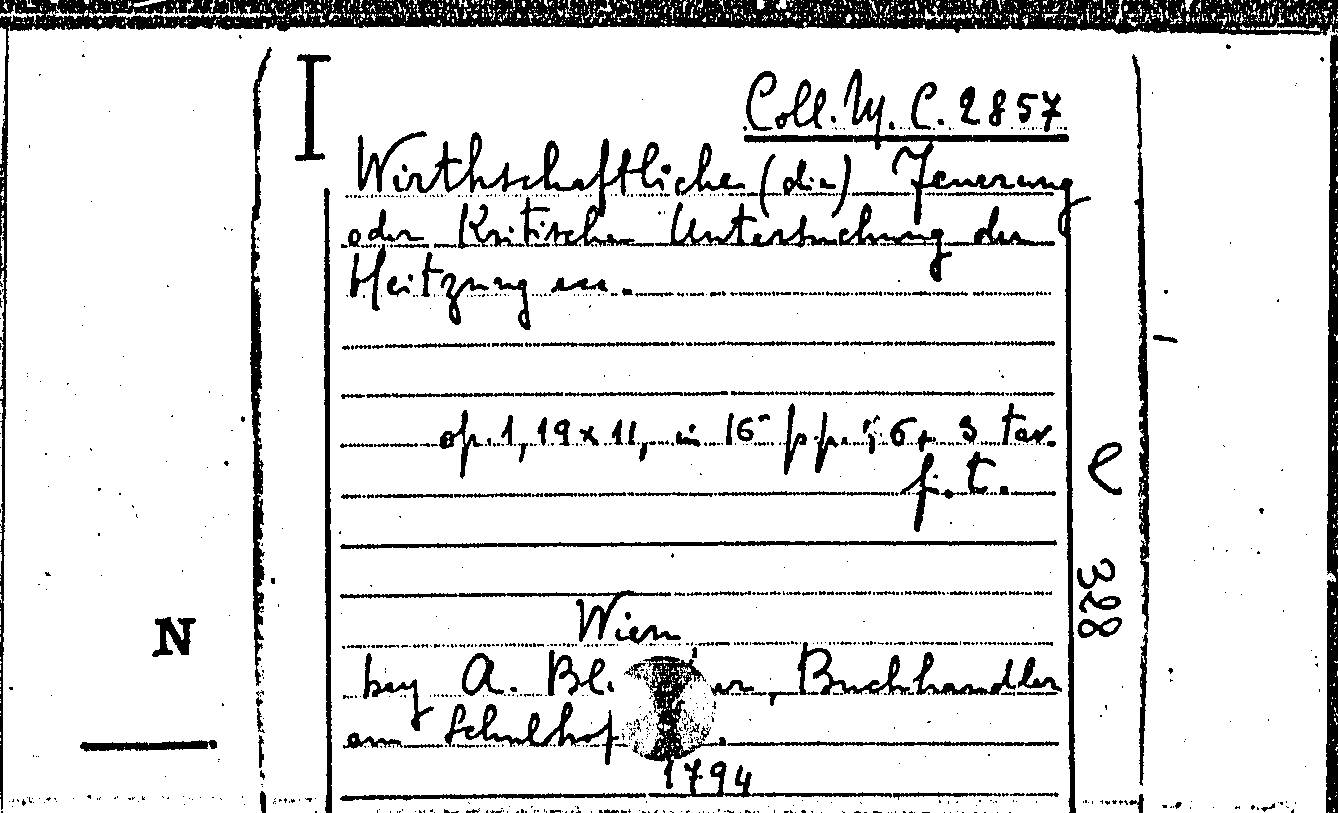 I
Coll. M. C. 2857
Wirthschaftliche (die) Feuerung
oder Kritische Untersuchung der
Heitzung ecc.
op. 1, 19 x 11, in 16° pp. 56, 3 tav.
f. t.
e 328
N
Wien
bey A. Bl. er, Buchhandler
am Schulhof.
1794